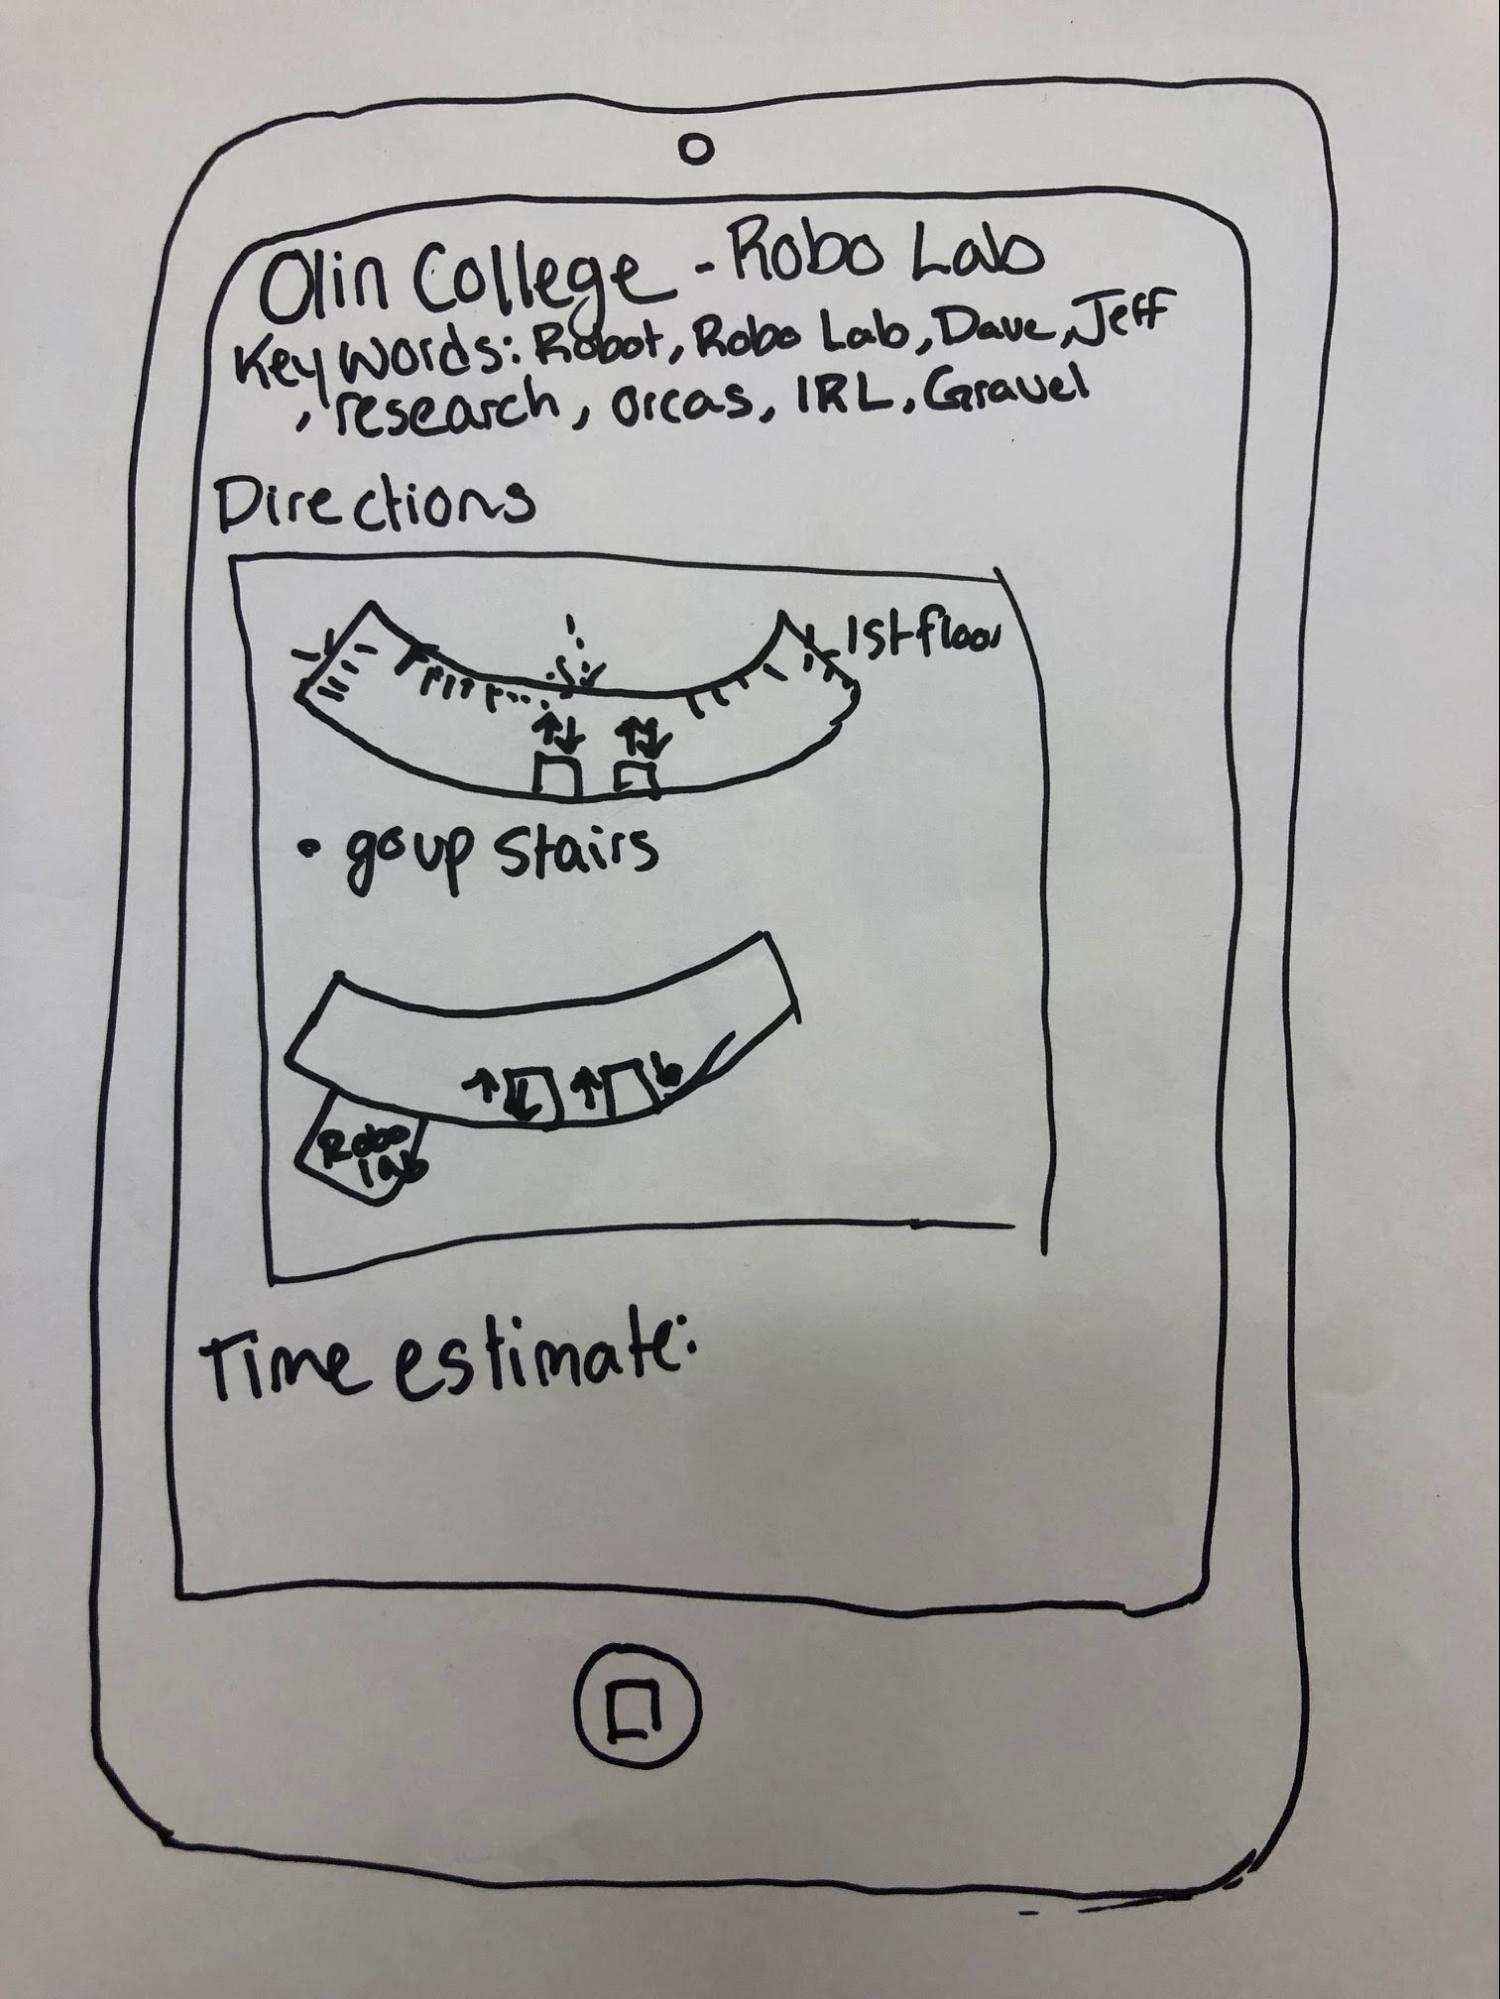 Olin College - Robo Lab
Key Words: Robot, Robo Lab, Dave, Jeff
, research, orcas, IRL, Gravel
Directions
1st floor
• go up stairs
Robo
lab
Time estimate: